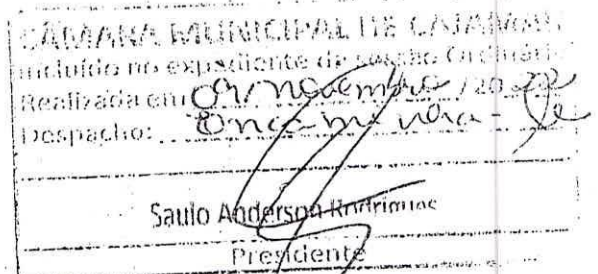 CÂMARA MUNICIPAL DE CAJAMAR
Incluído no expediente da sessão Ordinária
Realizada em 09/ novembro /2022
Despacho: Encaminha-se
Saulo Anderson Rodrigues
Presidente